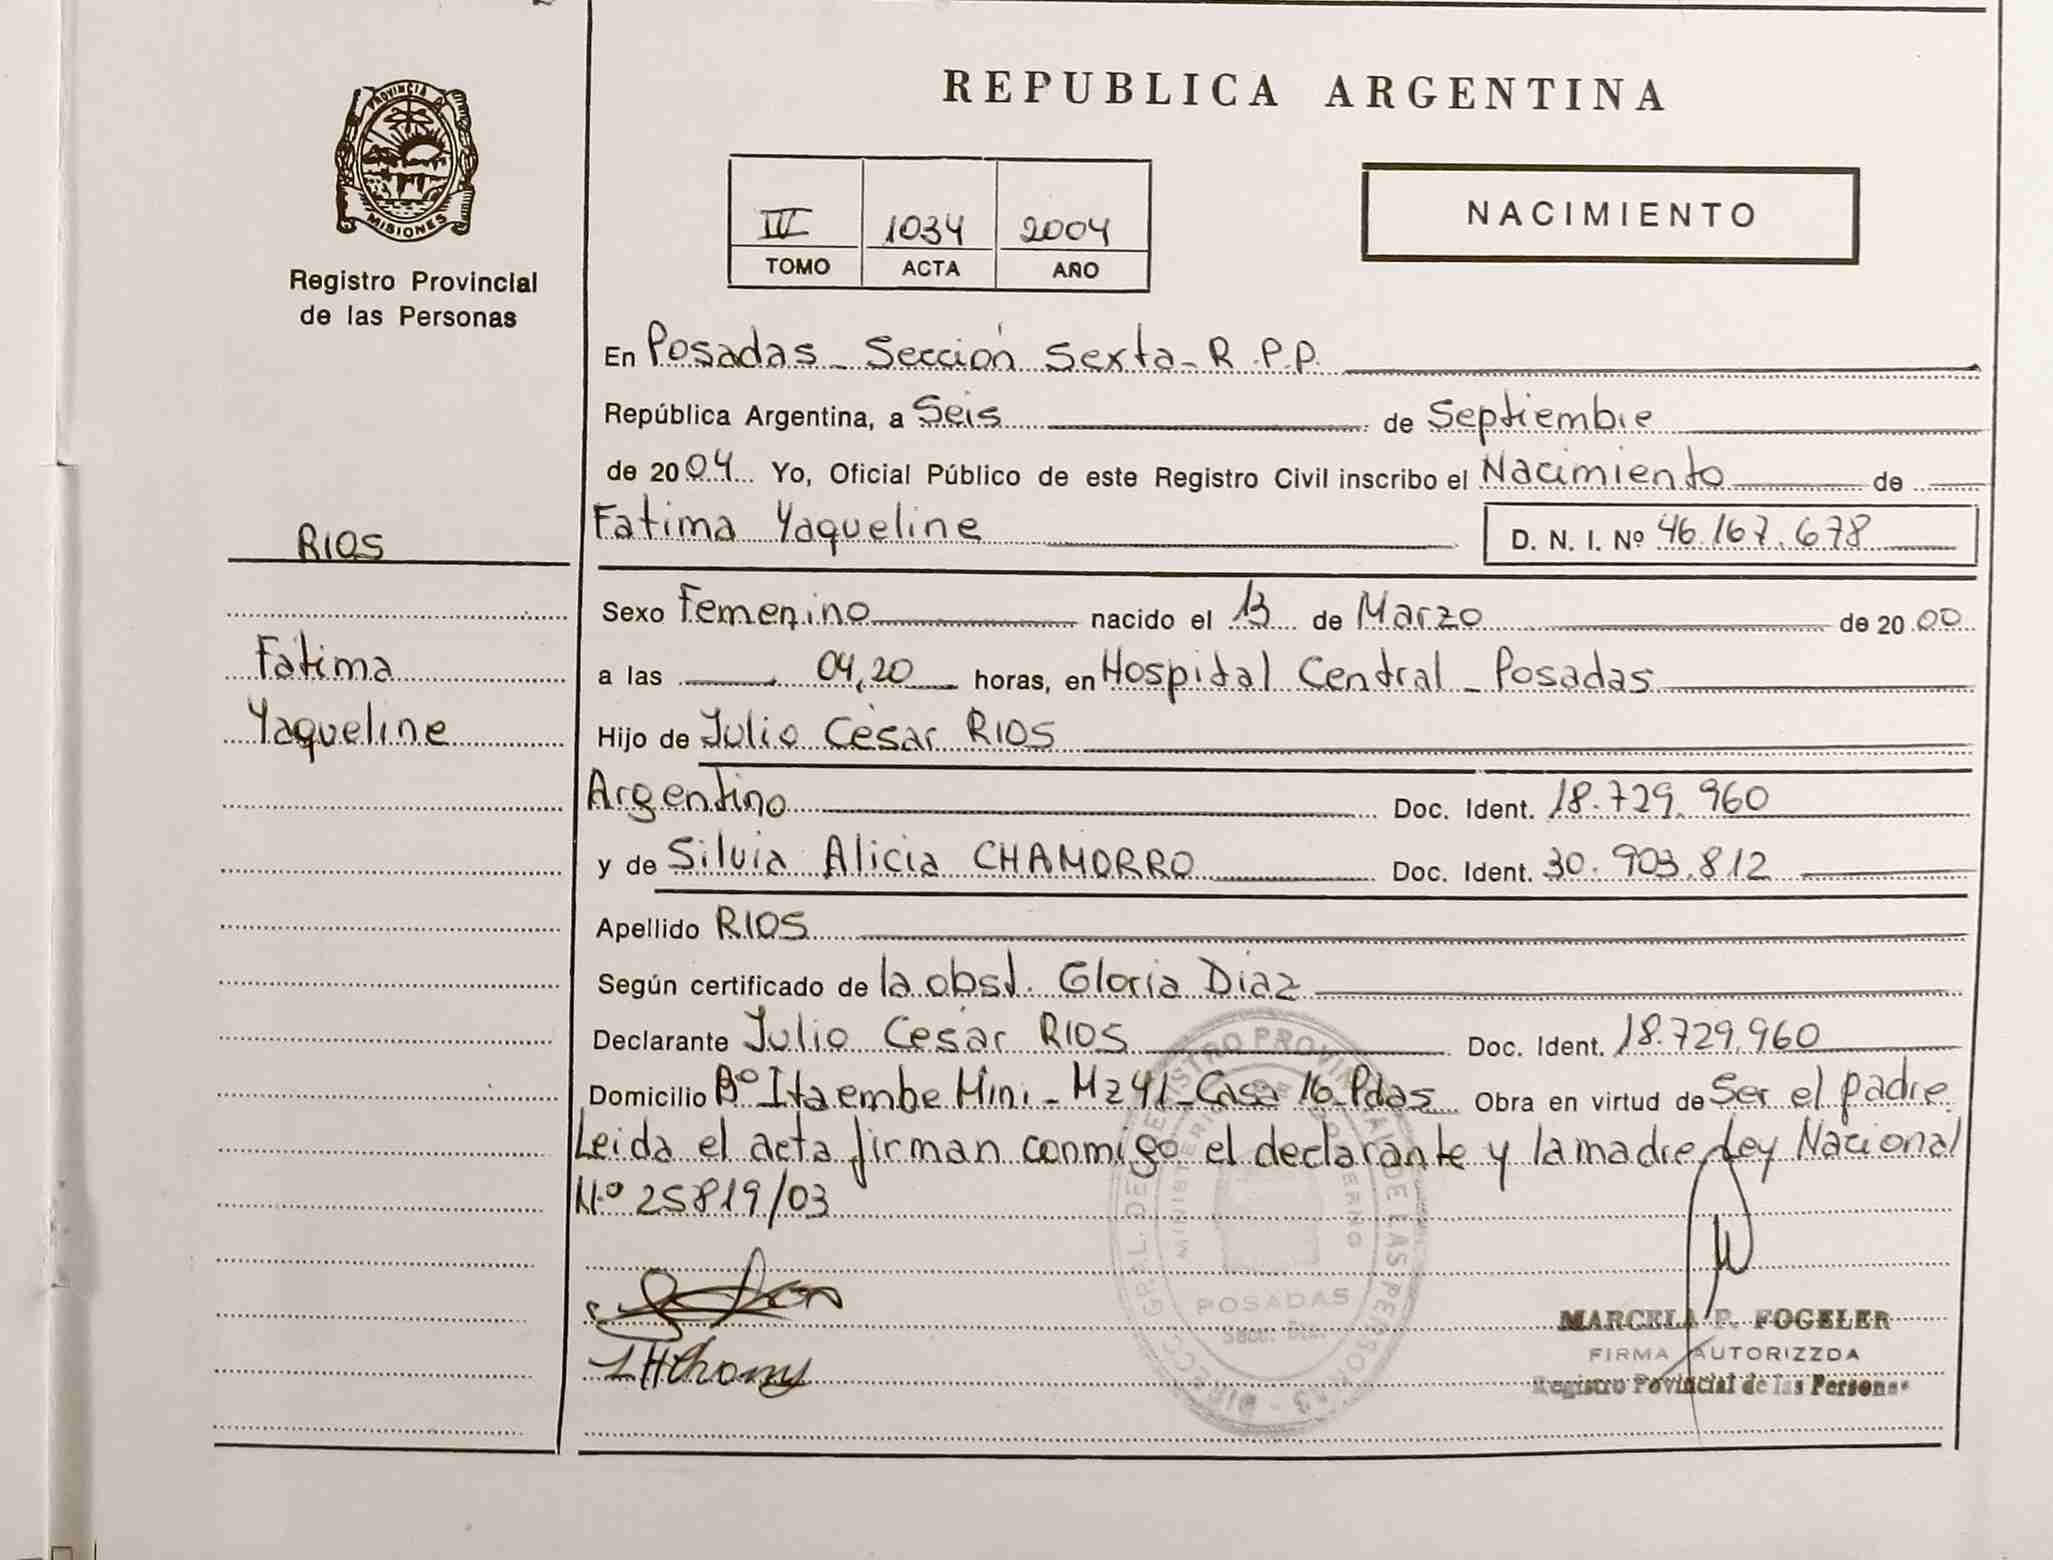 PROVINCIA D
MISIONES
Registro Provincial
de las Personas
REPUBLICA ARGENTINA
IV 1034 2004
TOMO ACTA AÑO
NACIMIENTO
En Posadas - Sección Sexta - R.P.P.
República Argentina, a Seis de Septiembre
de 2004 Yo, Oficial Público de este Registro Civil inscribo el Nacimiento de
Fatima Yaqueline D. N. I. Nº 46.167.678
RIOS
Fatima
Yaqueline
Sexo Femenino nacido el 13 de Marzo de 2000
a las 04,20 horas, en Hospital Central - Posadas
Hijo de Julio César RIOS
Argentino Doc. Ident. 18.729.960
y de Silvia Alicia CHAMORRO Doc. Ident. 30.903.812
Apellido RIOS
Según certificado de la obst. Gloria Diaz
Declarante Julio Cesar RIOS Doc. Ident. 18.729.960
Domicilio Bº Itaembe Mini - Mz 41 - Casa 16 - Pdas Obra en virtud de Ser el padre.
Leida el acta firman conmigo el declarante y la madre, Ley Nacional
Nº 25819/03
DIRECC. GRAL. DEL REGISTRO PROVINCIAL DE LAS PERSONAS
MINISTERIO DE GOBIERNO
POSADAS
MARCELA P. FOGELER
FIRMA AUTORIZZDA
Registro Povincial de las Personas